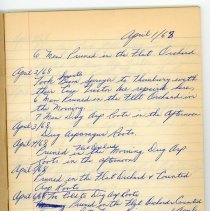 April 1/68
6 Men Pruned in the Flat Orchard
April 2/68
Took Sprayer to Thornbury with
their Tractor
6 Men Pruned in the Flat Orchard in
the Morning.
7 Men Dug Asp Roots in the Afternoon
April 3/68
Dug Asparagus Roots.
April 4/68
Pruned in the Morning Dug Asp
Roots in the afternoon
April 5/68
Pruned in the Flat Orchard & Counted
Asp Roots
April 6/68
Dug Asp Roots
Pruned in the Flat Orchard Counted